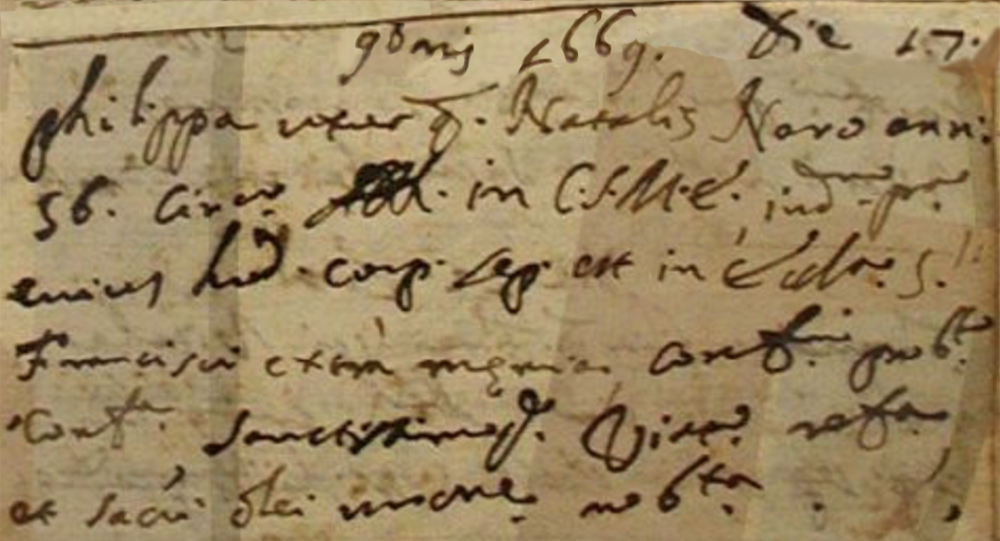 9bris 1669. Die 17.
Philippa uxor q. Natalis Naro ann:
56. circa in C.S.M.E. ind. pr.
cuius hod. corp. sep. est in Eccla. S.ti
Francisci extra menia. conf. prob.to
Conf. Sanctissimoq. Viat.o refta
et sacri olei unione robta.